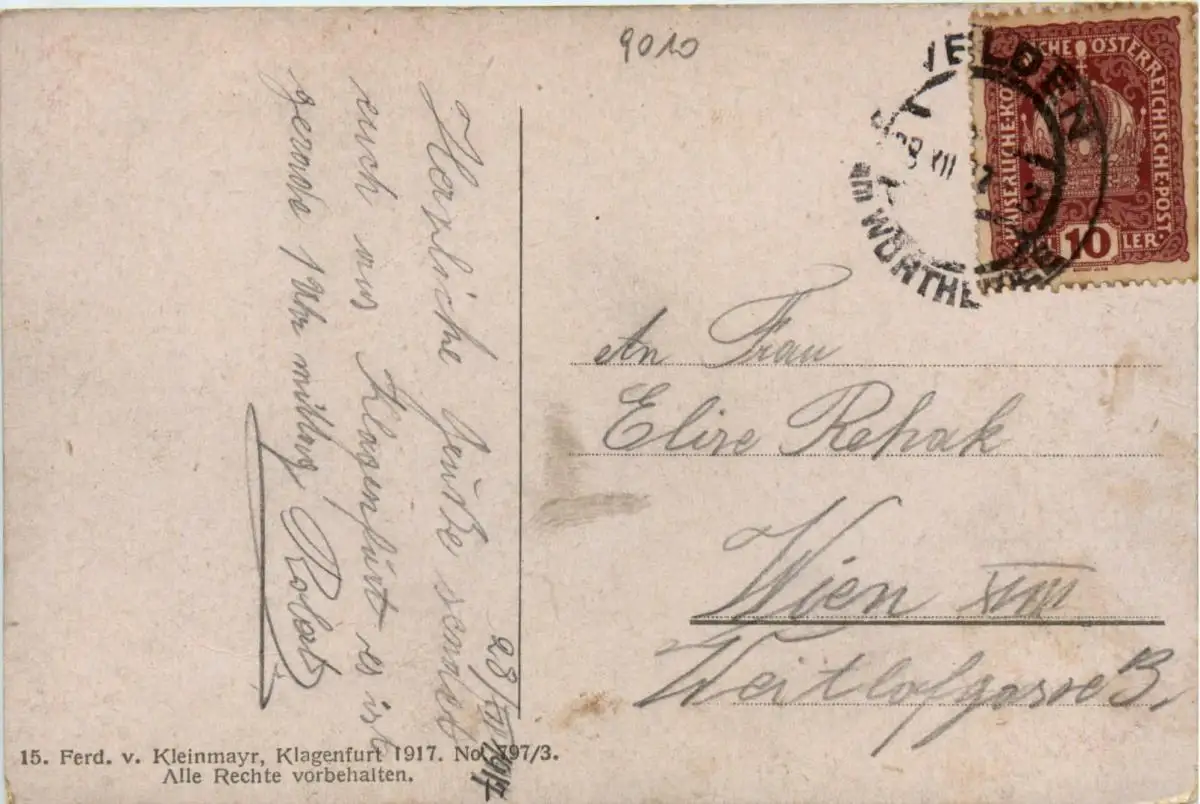 9010
KAISERLICHE KÖNIGLICHE ÖSTERREICHISCHE POST
10
VELDEN
am WÖRTHERSEE
28/XII 1917
Herzliche Grüße sendet
euch aus Klagenfurt es ist
gerade 1 Uhr mittag Robert
An Frau
Elise Rehak
Wien XVIII
Weitlofgasse 3.
15. Ferd. v. Kleinmayr, Klagenfurt 1917. No. 797/3.
Alle Rechte vorbehalten.